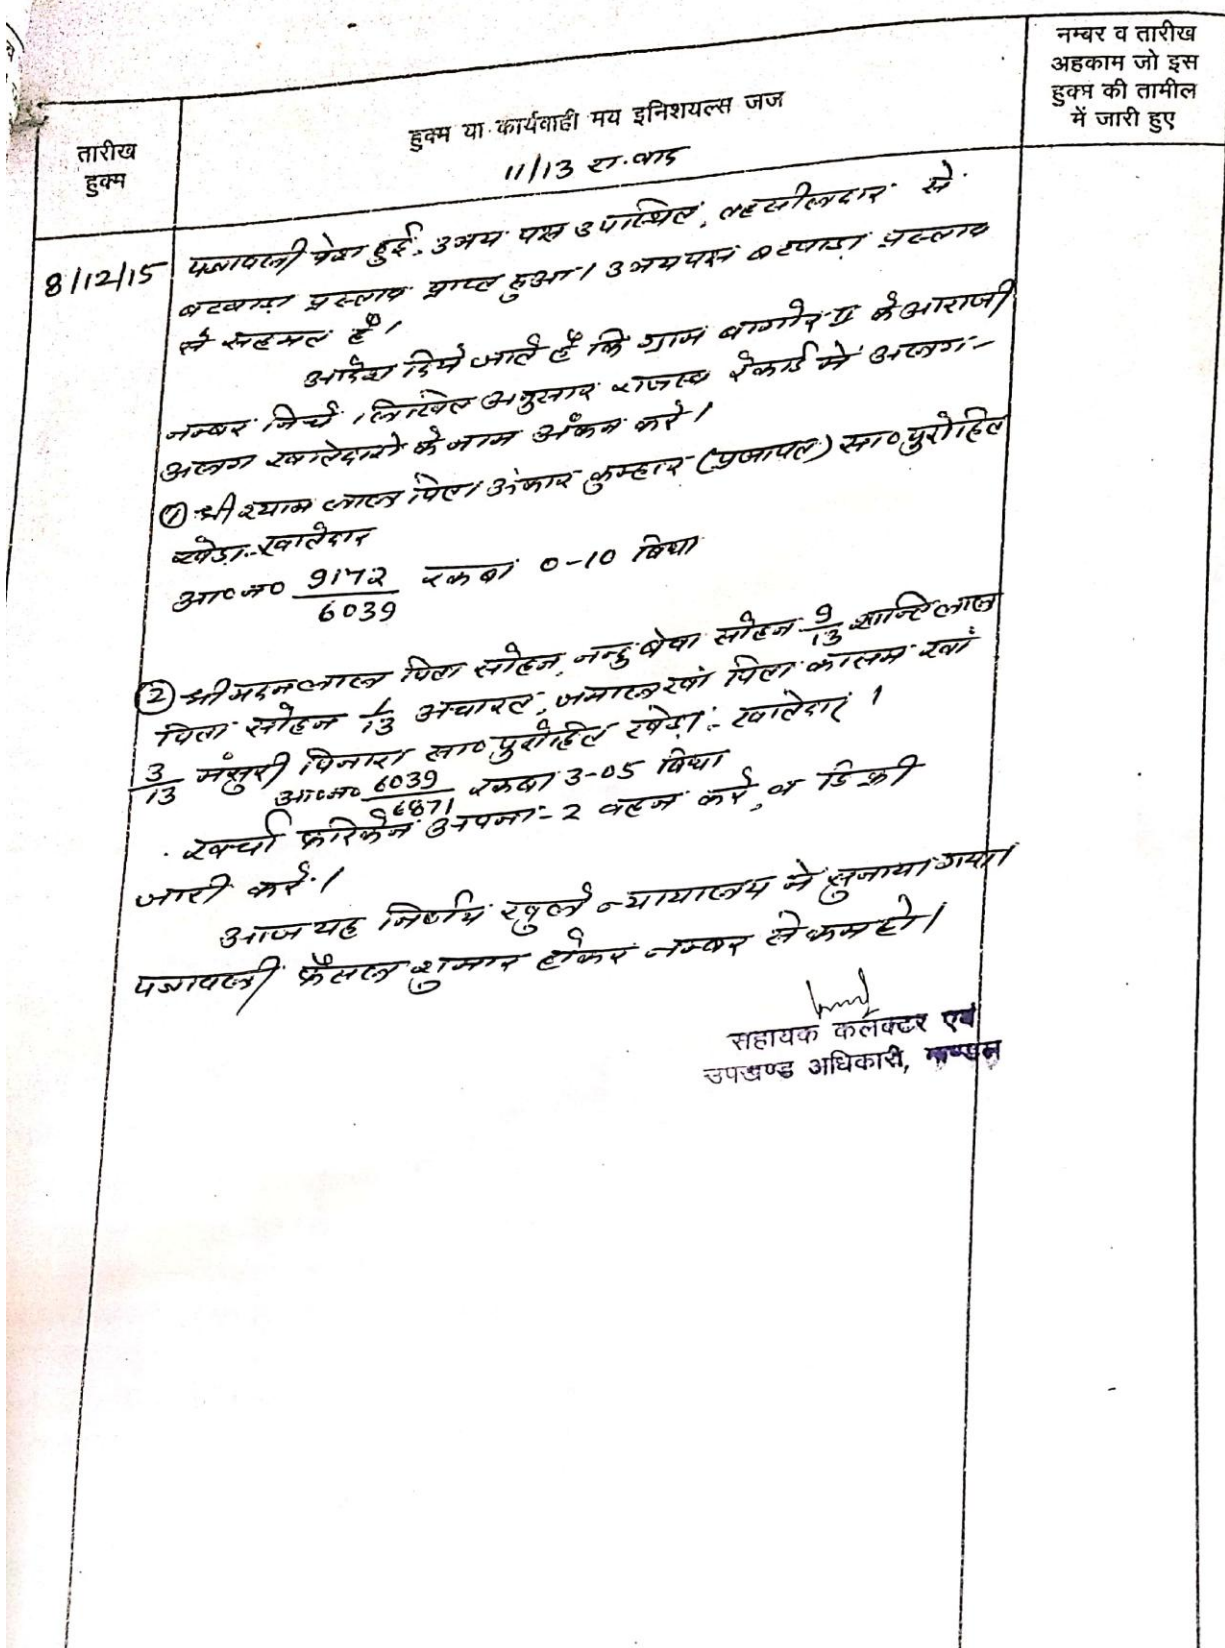 नम्बर व तारीख
अहकाम जो इस
हुक्म की तामील
में जारी हुए
तारीख
हुक्म
हुक्म या कार्यवाही मय इनिशयल्स जज
11/13 रा.वाद
8/12/15 पत्रावली पेश हुई. उभय पक्ष उपस्थित, तहसीलदार से
बटवाड़ा प्रस्ताव प्राप्त हुआ। उभयपक्ष बटवाड़ा प्रस्ताव
से सहमत है।
आदेश दिये जाते है कि ग्राम बागोर-II के आराजी
नम्बर निचे लिखित अनुसार राजस्व रेकार्ड मे अलग-
अलग खातेदारो के नाम अंकन करे।
① श्री श्याम लाल पिता अंकार कुम्हार (प्रजापत) सा० पुरोहित
खेड़ा.- खातेदार
आ०न० 9172/6039 रकबा 0-10 बिघा
② श्री मदनलाल पिता सोहन, नन्दु बेवा सोहन 9/13 शान्तिलाल
पिता सोहन 1/13 अचारत, जमालखां पिता कासम खां
3/13 मंसुरी पिनारा सा० पुरोहित खेड़ा.- खातेदार।
आ०न० 6039/6871 रकबा 3-05 बिघा
खर्चा फरिकेन अपना-2 वहन करे, व डिक्री
जारी करे।
आज यह निर्णय खुले न्यायालय मे सुनाया गया।
पत्रावली फैसल शुमार होकर नम्बर से कम हो।
सहायक कलक्टर एवं
उपखण्ड अधिकारी, माण्डल